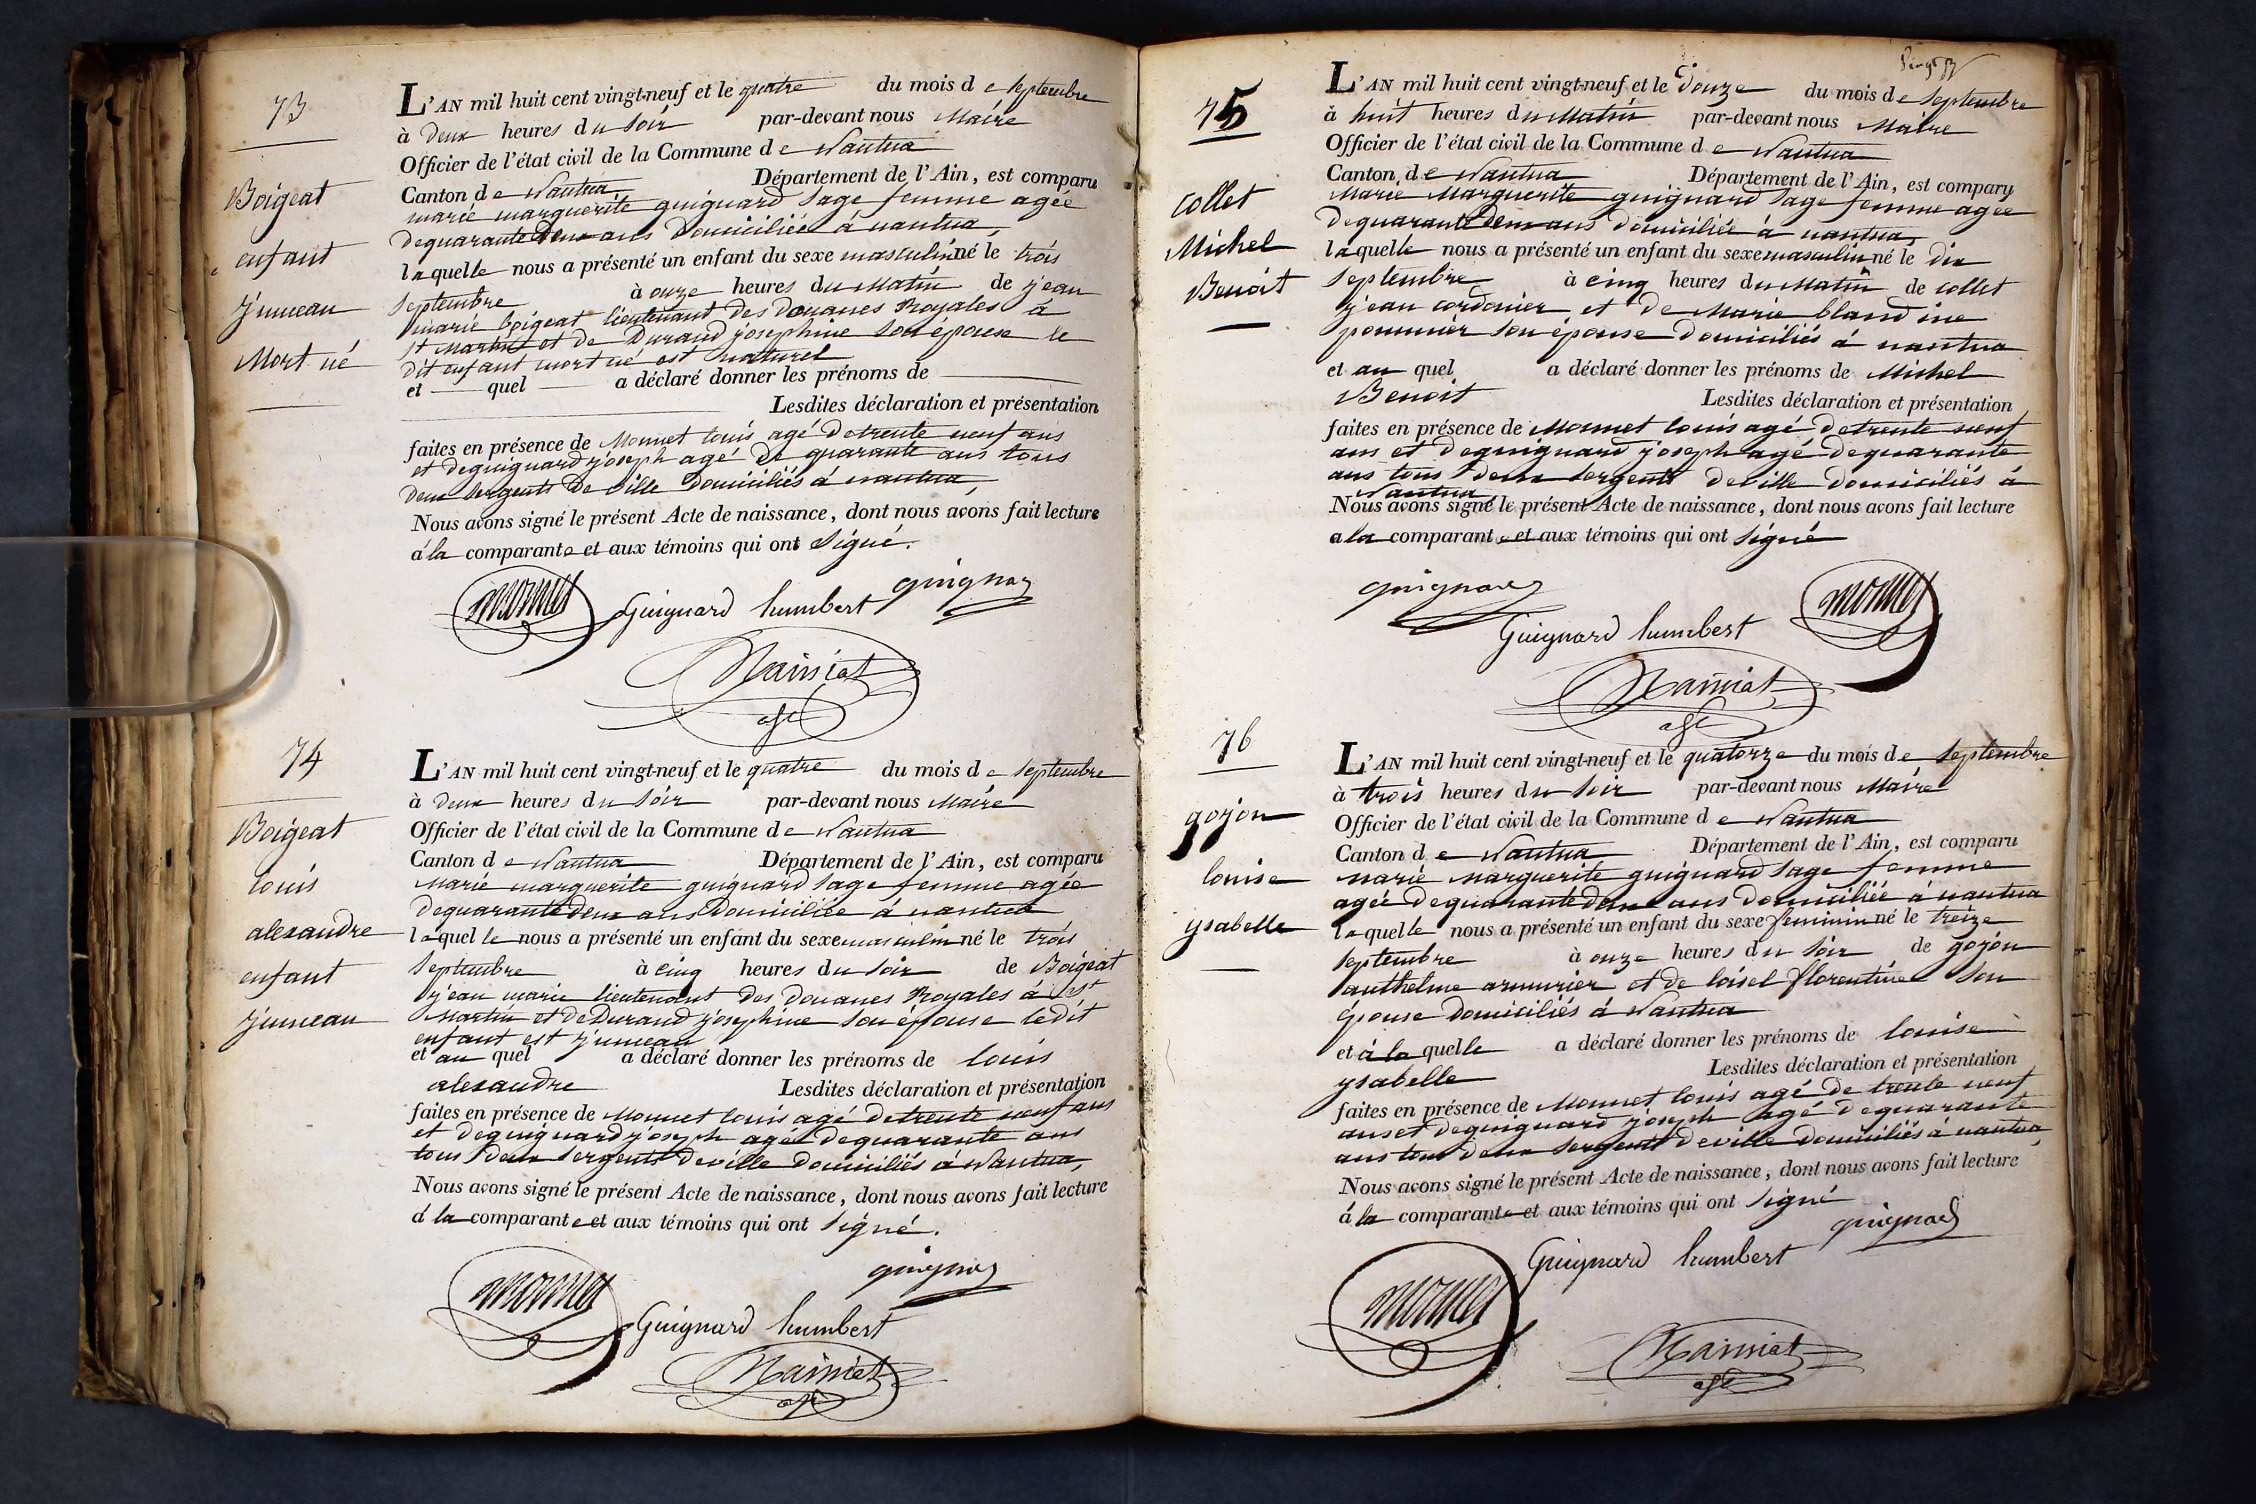 73
Boigeat
enfant
jumeau
Mort né
L'AN mil huit cent vingt-neuf et le quatre du mois de septembre
à deux heures du soir par-devant nous Maire
Officier de l'état civil de la Commune de Nantua
Canton de Nantua Département de l'Ain, est comparu
marie marguerite guignard sage femme agée
de quarante deux ans domiciliée à nantua,
laquelle nous a présenté un enfant du sexe masculin né le trois
septembre à onze heures du Matin de jean
marie boigeat lieutenant des douanes Royales à
st Martin et de Durand josephine son épouse le
dit enfant mort né est naturel
et quel a déclaré donner les prénoms de
Lesdites déclaration et présentation
faites en présence de Monnet louis agé de trente neuf ans
et de guignard joseph agé de quarante ans tous
deux sergents de ville domiciliés à nantua,
Nous avons signé le présent Acte de naissance, dont nous avons fait lecture
à la comparante et aux témoins qui ont signé.
monnet Guignard humbert guignard
74
Boigeat
louis
alexandre
enfant
jumeau
L'AN mil huit cent vingt-neuf et le quatre du mois de septembre
à deux heures du soir par-devant nous Maire
Officier de l'état civil de la Commune de Nantua
Canton de Nantua Département de l'Ain, est comparu
Marie marguerite guignard sage femme agée
de quarante deux ans domiciliée à nantua
laquelle nous a présenté un enfant du sexe masculin né le trois
septembre à cinq heures du soir de Boigeat
jean marie lieutenant des douanes Royales à st
Martin et de Durand josephine son épouse ledit
enfant est jumeau
et au quel a déclaré donner les prénoms de louis
alexandre Lesdites déclaration et présentation
faites en présence de Monnet louis agé de trente neuf ans
et de guignard joseph agé de quarante ans
tous deux sergents de ville domiciliés à Nantua,
Nous avons signé le présent Acte de naissance, dont nous avons fait lecture
à la comparante et aux témoins qui ont signé.
monnet guignard
Guignard humbert
75
collet
Michel
Benoit
L'AN mil huit cent vingt-neuf et le douze du mois de septembre
à huit heures du Matin par-devant nous Maire
Officier de l'état civil de la Commune de Nantua
Canton de Nantua Département de l'Ain, est comparu
Marie Marguerite guignard sage femme agée
de quarante deux ans domiciliée à nantua,
laquelle nous a présenté un enfant du sexe masculin né le dix
septembre à cinq heures du Matin de collet
jean cordonier et de Marie blandine
pommier son épouse domiciliés à nantua
et au quel a déclaré donner les prénoms de Michel
Benoit Lesdites déclaration et présentation
faites en présence de Monnet louis agé de trente neuf
ans et de guignard joseph agé de quarante
ans tous deux sergents de ville domiciliés à
Nantua
Nous avons signé le présent Acte de naissance, dont nous avons fait lecture
a la comparante et aux témoins qui ont signé
guignard monnet
Guignard humbert
76
gojon
louise
ysabelle
L'AN mil huit cent vingt-neuf et le quatorze du mois de septembre
à trois heures du soir par-devant nous Maire
Officier de l'état civil de la Commune de Nantua
Canton de Nantua Département de l'Ain, est comparu
Marie Marguerite guignard sage femme
agée de quarante deux ans domiciliée à nantua
laquelle nous a présenté un enfant du sexe feminin né le treize
septembre à onze heures du soir de gojon
anthelme armurier et de loisel florentine son
épouse domiciliés à Nantua
et à la quelle a déclaré donner les prénoms de louise
ysabelle Lesdites déclaration et présentation
faites en présence de Monnet louis agé de trente neuf
ans et de guignard joseph agé de quarante
ans tous deux sergents de ville domiciliés à nantua,
Nous avons signé le présent Acte de naissance, dont nous avons fait lecture
à la comparante et aux témoins qui ont signé
guignard
Guignard humbert
monnet